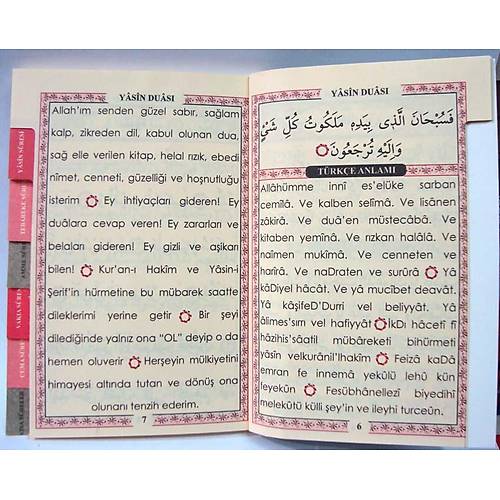 YÂSÎN DUÂSI
Allah'ım senden güzel sabır, sağlam
kalp, zikreden dil, kabul olunan dua,
sağ elle verilen kitap, helal rızık, ebedi
nîmet, cenneti, güzelliği ve hoşnutluğu
isterim Ey ihtiyaçları gideren! Ey
duâlara cevap veren! Ey zararları ve
belaları gideren! Ey gizli ve aşikarı
bilen! Kur'an-ı Hakîm ve Yâsin-i
Şerif'in hürmetine bu mübarek saatte
dileklerimi yerine getir Bir şeyi
dilediğinde yalnız ona "OL" deyip o da
hemen oluverir Herşeyin mülkiyetini
himayesi altında tutan ve dönüş ona
olunanı tenzih ederim.
7
YÂSÎN SÛRESİ
TEBAREKE SÛRE
AMME SÛRE
VAKIA SÛRES
CUMA SÛRE
YÂSÎN DUÂSI
فَسُبْحَانَ الَّذٖي بِيَدِهٖ مَلَكُوتُ كُلِّ شَيْءٍ
وَاِلَيْهِ تُرْجَعُونَ
TÜRKÇE ANLAMI
Allâhümme innî es'elüke sarban
cemilâ. Ve kalben selîmâ. Ve lisânen
zâkirâ. Ve duâ'en müstecâbâ. Ve
kitaben yemînâ. Ve rızkan halâlâ. Ve
naîmen mukîmâ. Ve cenneten ve
harîrâ. Ve naDraten ve surûrâ Yâ
kâDiyel hâcât. Ve yâ mucîbet deavât.
Yâ kâşifeD'Durri vel beliyyât. Yâ
âlimes'sırrı vel hafiyyât IkDı hâcetî fî
hâzihis'sâatil mübâreketi bihürmeti
yâsîn velkurânil'lhakîm Feizâ kaDâ
emran fe innemâ yekûlü lehû kün
feyekûn Fesübhânellezî biyedihî
melekûtü külli şey'in ve ileyhi turceûn.
6